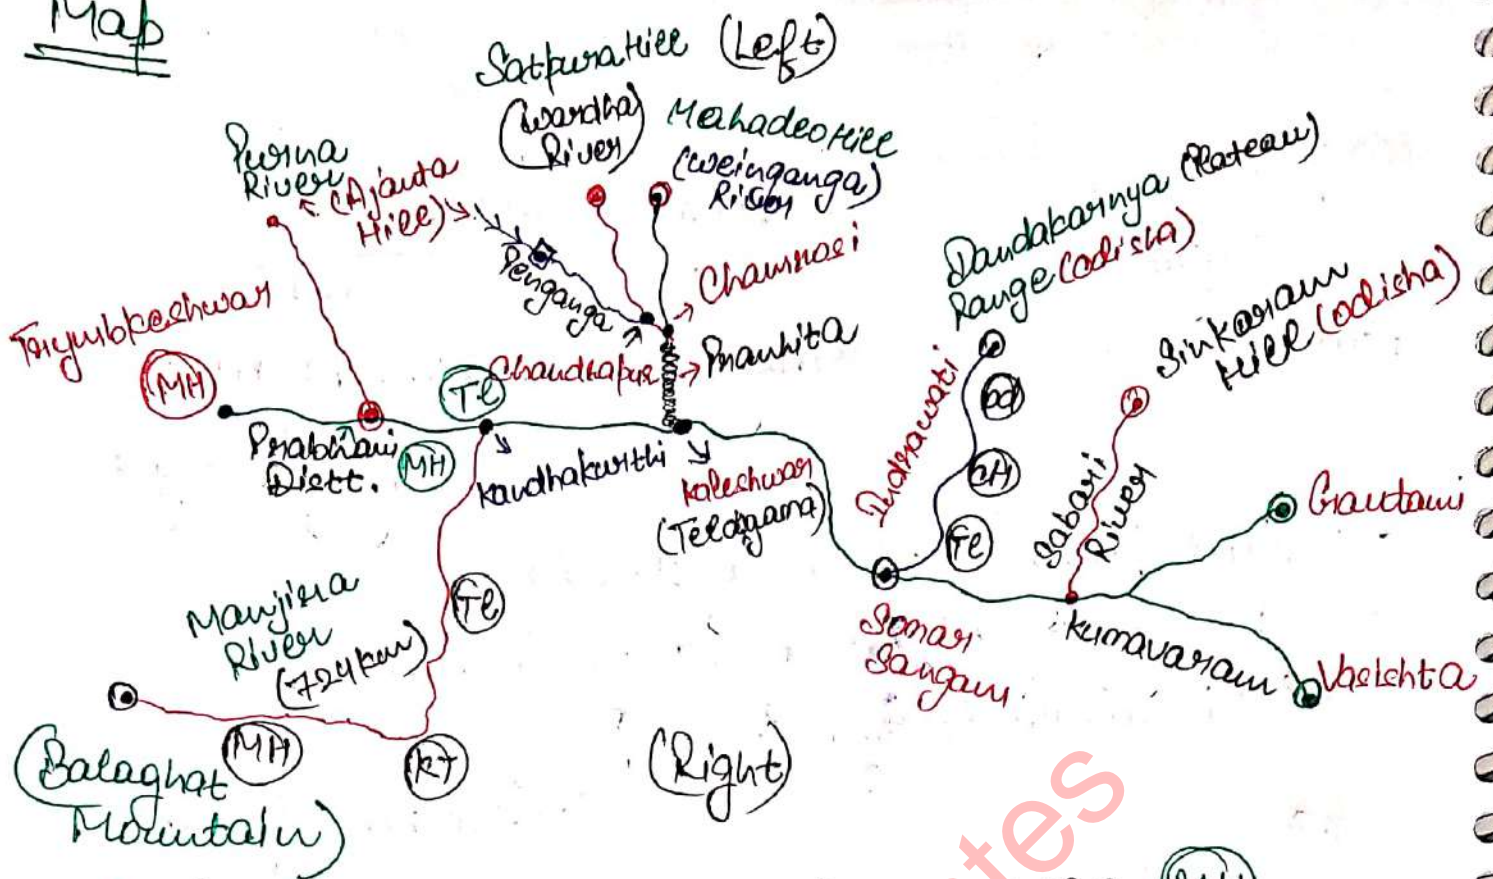 Map
Satpura Hill (Left)
(Wardha
River)
Mahadeo Hill
(Weinganga)
River
Purna
River
(Ajanta
Hill)
Penganga
Chamrosi
Chandrapur
Pranhita
Dandakarnya (Plateau)
Range (Odisha)
Sinkaram
Hill (Odisha)
Trymbkeshwar
MH
Prabhani
Distt.
MH
Te
Kandhakurthi
Kaleshwar
(Telangana)
Indrawati
od
CH
Te
Sabari
River
Gautami
Somar
Sangam
Kunavaram
Vasishta
Manjira
River
(724km)
Te
MH
KT
(Balaghat
Mountain)
(Right)
tes